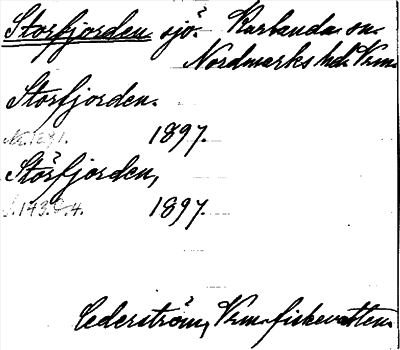 Storfjorden sjö. Karlanda sn.
Nordmarks hd. Vrm.
Storfjorden.
1897.
Störfjorden,
S. 143. 1897.
Cederström, Vrm. fiskevatten.